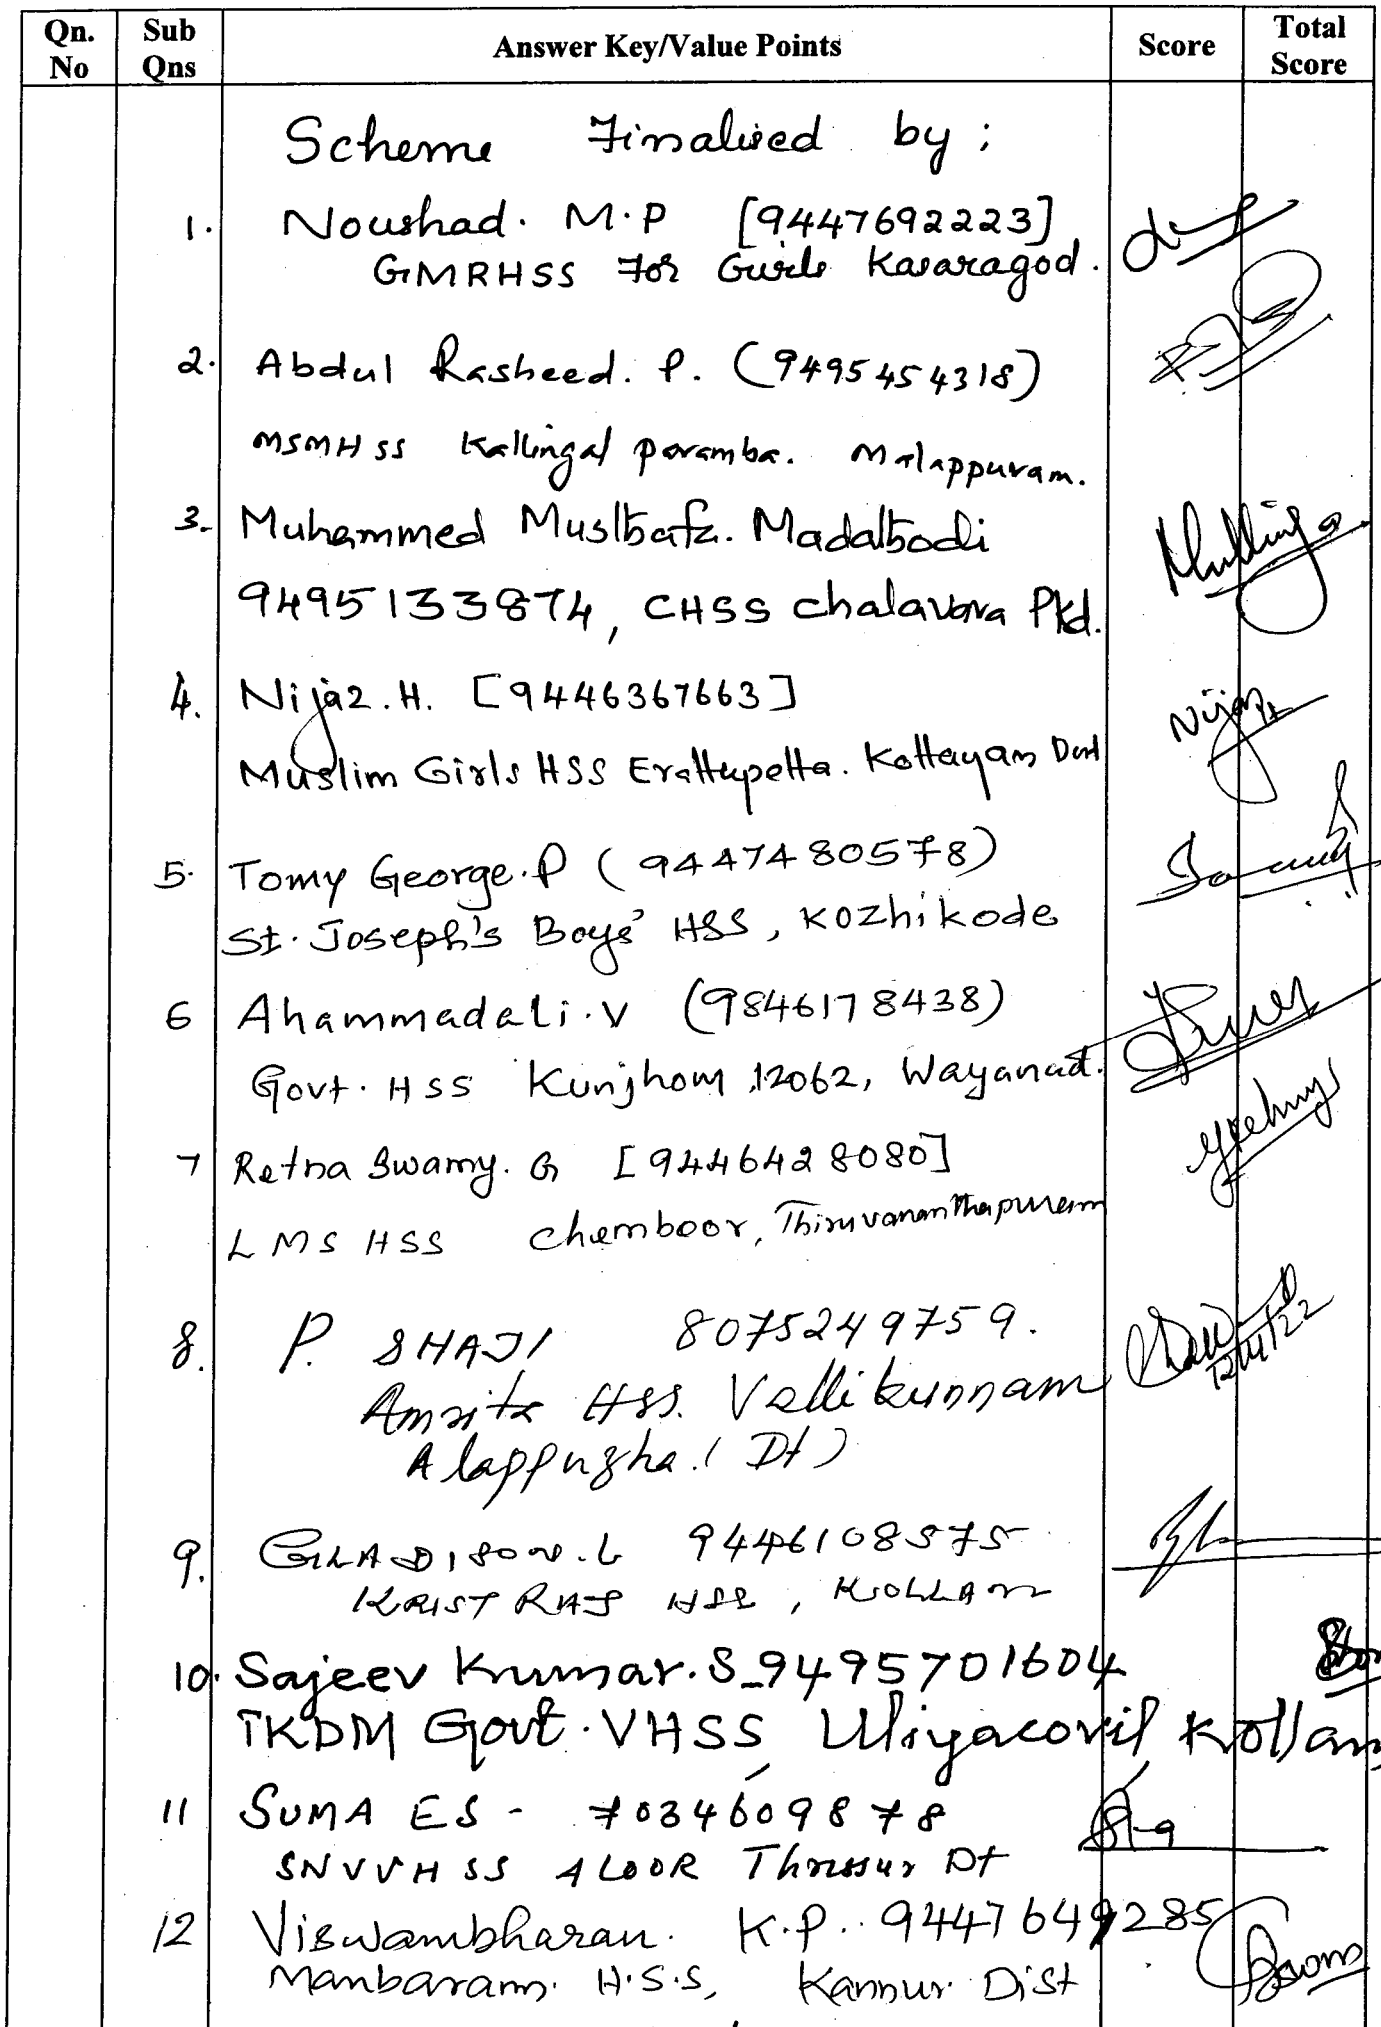 Qn. No Sub Qns Answer Key/Value Points Score Total Score
Scheme Finalised by ;
1. Noushad. M.P [9447692223]
GMRHSS For Girls Kasaragod.
2. Abdul Rasheed. P. (9495454318)
MSMHSS Kallingal paramba. Malappuram.
3. Muhammed Musthafa. Madathodi
9495133874, CHSS Chalavara Pkd.
4. Nijaz. H. [9446367663]
Muslim Girls HSS Erattupetta. Kottayam Dist
5. Tomy George. P (9447480578)
St. Joseph's Boys' HSS, Kozhikode
6 Ahammadali. V (9846178438)
Govt. HSS Kunjhom 12062, Wayanad.
7 Retna Swamy. G [9446428080]
LMS HSS Chemboor, Thiruvananthapuram
8. P. SHAJI 8075249759.
Amrita HSS. Vallikunnam
Alappuzha. (Dt)
12/4/22
9. GLADISON. L 9446108575
KRIST RAJ HSS, KOLLAM
10. Sajeev Krumar. S_9495701604
TKDM Govt. VHSS, Uliyacovil Kollam
11 SUMA ES - 7034609878
SNVVHSS ALOOR Thrissur Dt
12 Viswambharan. K.P.. 9447649285
Mambaram. H.S.S, Kannur Dist